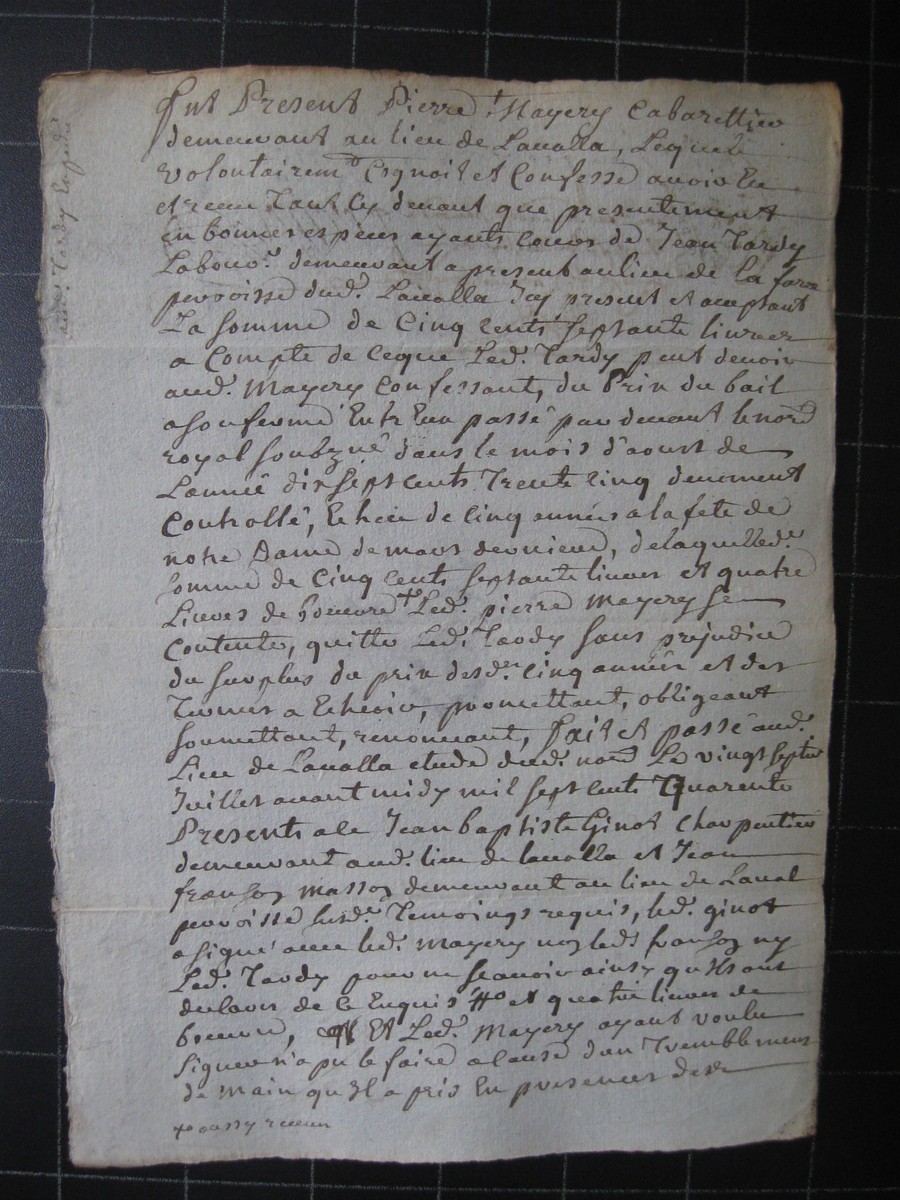 fut Present Pierre Mayery Cabarettier
demeurant au lieu de Lavalla, Lequel
volontairemt Cognoit et Confesse avoir Eu
et receu tant Cy devant que presentement
En bonnes espèces ayants cours de Jean Tardy
Labour. demeurant a present au lieu de la fare
parroisse dud. Lavalla Icy present et aceptant
La somme de Cinq cents septante livres
a Compte de ceque Led. Tardy peut devoir
aud. Mayery Confessant, du Prix du bail
a son ferme Entr'Eux passé par devant le nore
royal soubzné dans le mois d'aoust de
Lannée dix sept cents Trente cinq deuement
Controllé, Echeue de cinq années a la fete de
notre Dame de mars derniere, delaquelled.
somme de Cinq cents septante livres et quatre
Livres de beurre + Led. pierre Mayery se
Contente, quitte Led. Tardy sans prejudice
du surplus du prix desd. cinq années et des
Termes a Echoir, promettant, obligeant
soumettant, renoncant, fait et passé aud.
Lieu de Lavalla etude dud. nore Le vingt sept
Juillet avant midy mil sept cents Quarente
Presents a ce Jean baptiste Ginot Charpentier
demeurant aud. lieu de lavalla et Jean
franson masson demeurant au lieu de Laval
parroisse susd. Temoings requis, led. ginot
a signé avec led. Mayery non led. franson ny
Led. Tardy pour ne scavoir ainsy qu'ils ont
declaré de ce Enquis et quatre livres de
beurre, Et Led. Mayery ayant voulu
signer n'a pu le faire a cause d'un Tremblement
de main qu'Il a pris En presences desd.
+ aussy receu
Tardy